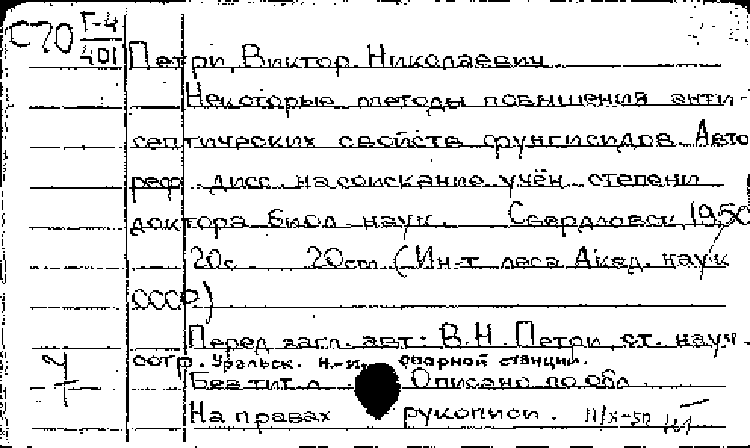 С70 Г-4
401
Петри, Виктор Николаевич
Некоторые методы повышения анти-
септических свойств фунгисидов. Авто
реф. дисс. на соискание учён. степени
доктора биол. наук. Свердловск, 1950
20с. 20см (Ин-т леса Акад. наук
СССР)
Перед загл. авт: В.Н. Петри, ст. науч.
сотр. Уральск. н.-и. станции.
Без тит. л. Описано по обл
На правах рукописи. 11/X-50